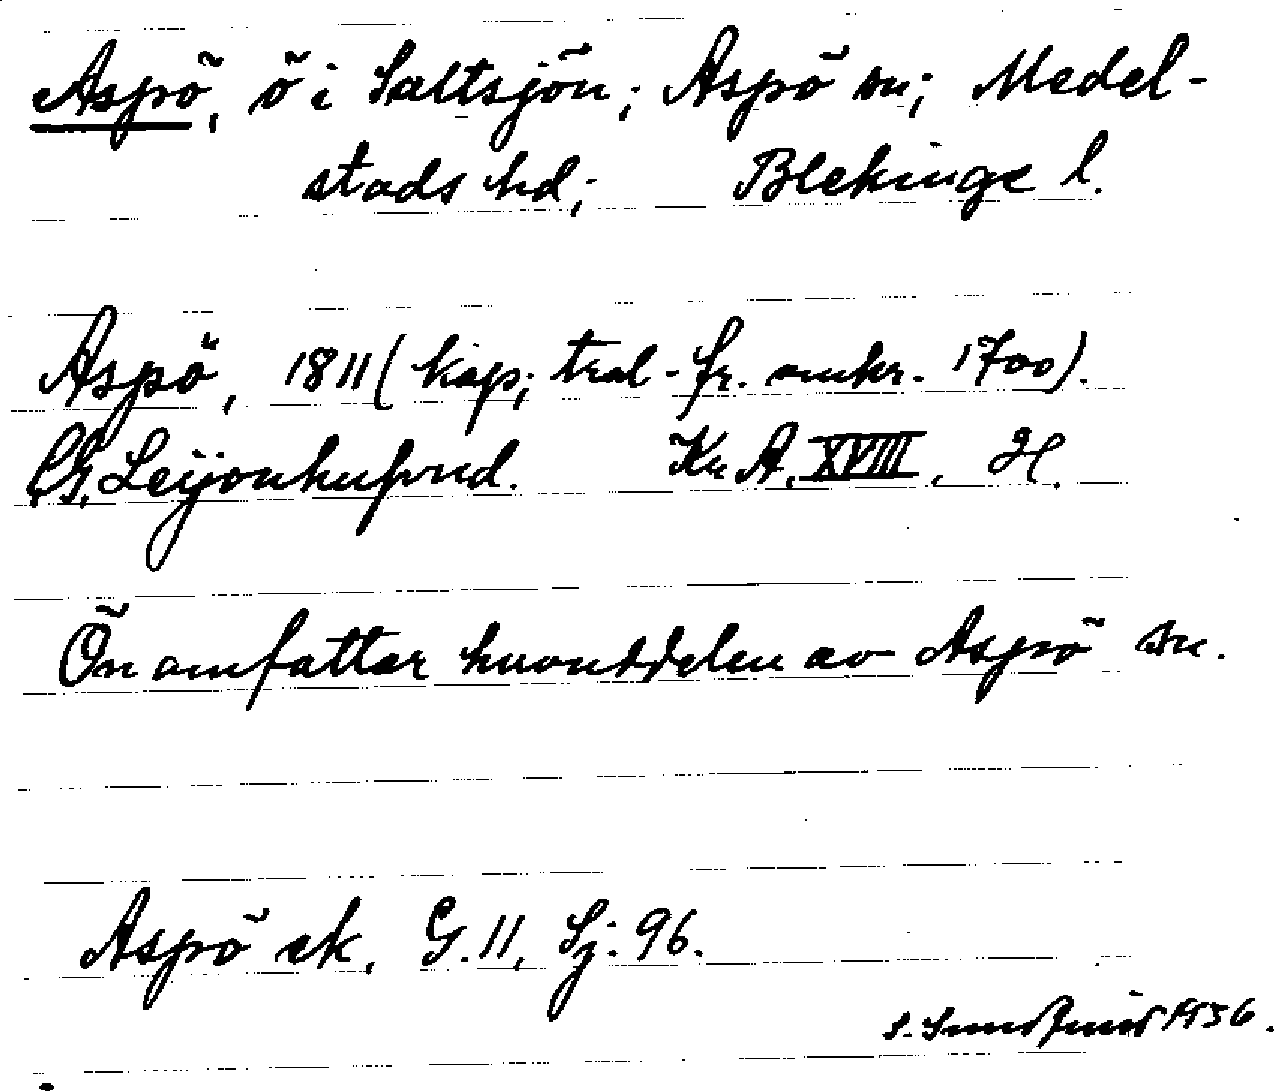 Aspö, ö i Saltsjön; Aspö sn; Medel-
stads hd; Blekinge l.
Aspö, 1811 (kop; tral-fr. omkr. 1700).
CG. Leijonhufvud. Kr. A. XVIII, H.
Ön omfattar huvuddelen av Aspö sn.
Aspö ek. G.11, Sj. 96.
S. 1936.